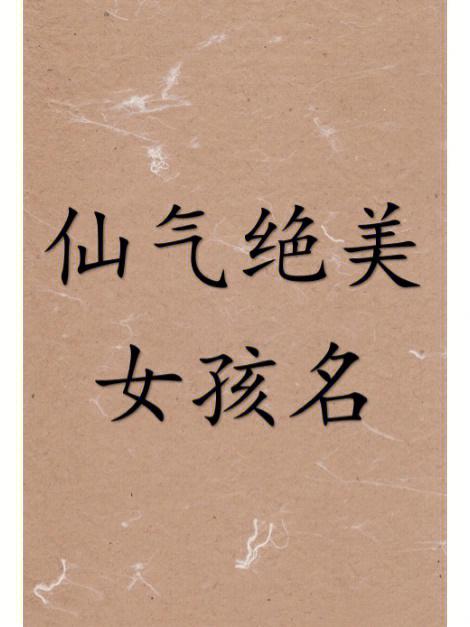 仙气绝美
女孩名